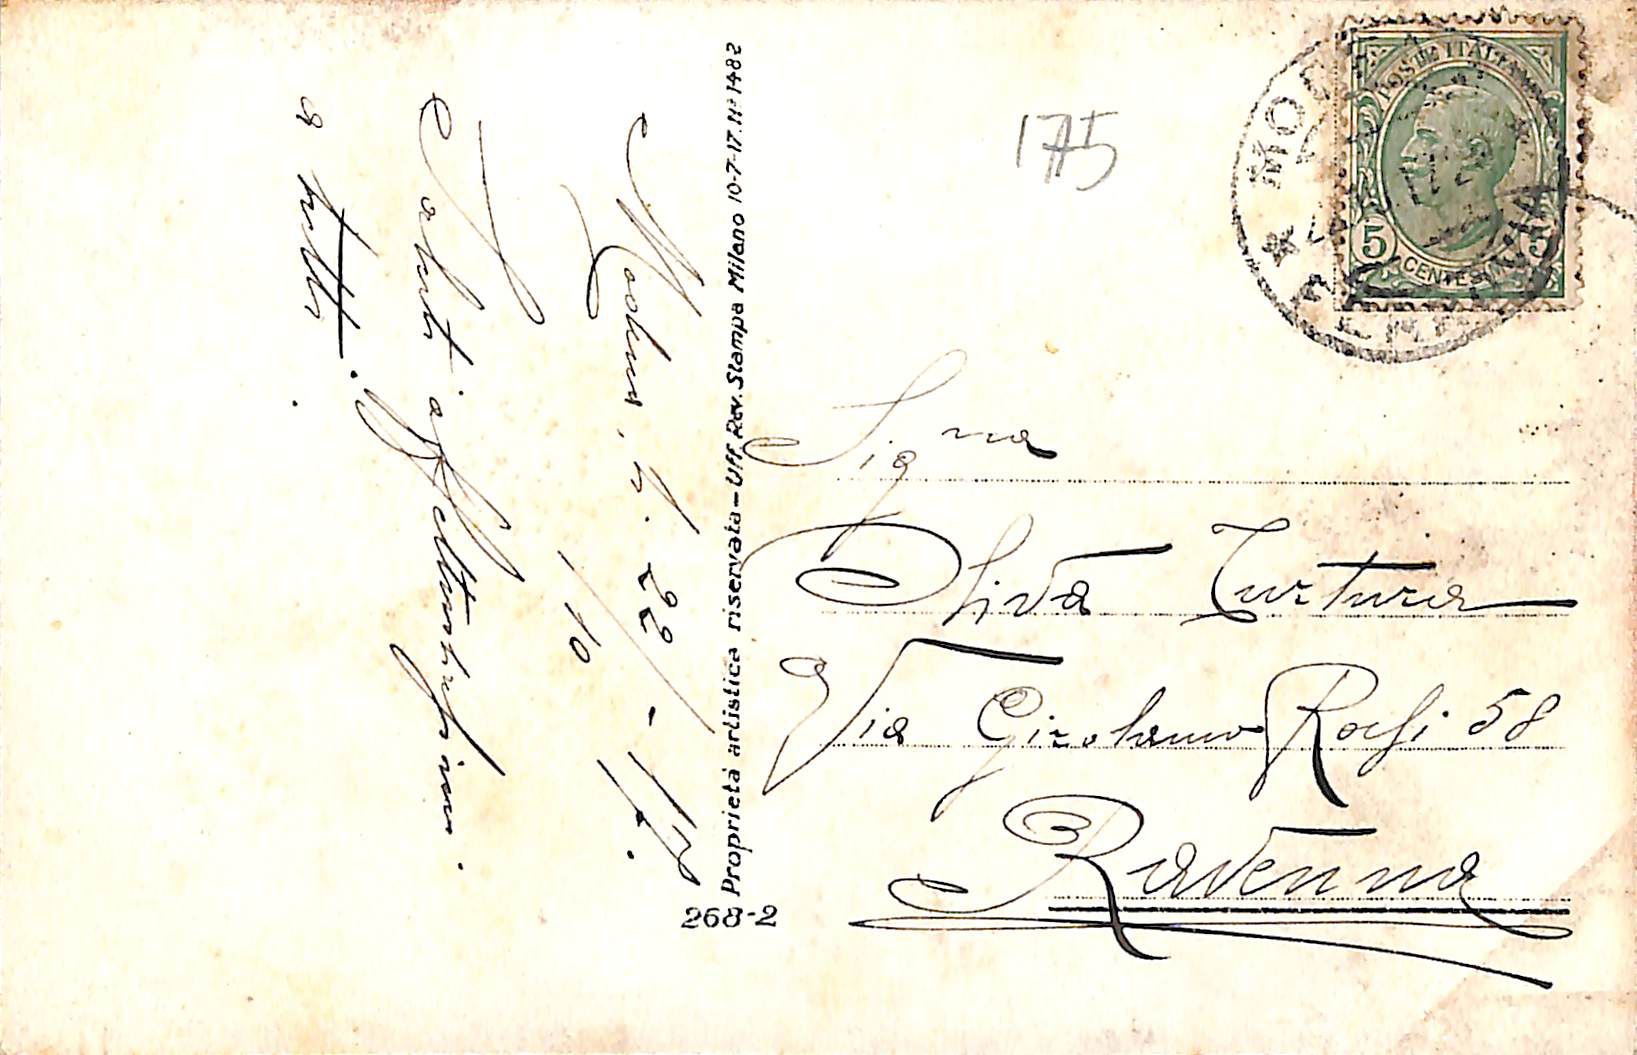 Modena, li. 22/10 - 17.
Saluti affettuosissimi.
a tutti.
Proprietà artistica riservata - Uff. Rev. Stampa Milano 10-7-17. N° 1482
268-2
175
POSTE ITALIANE
5 CENTESIMI 5
Sig.na
Oliva Turtura
Via Girolamo Rossi 58
Ravenna